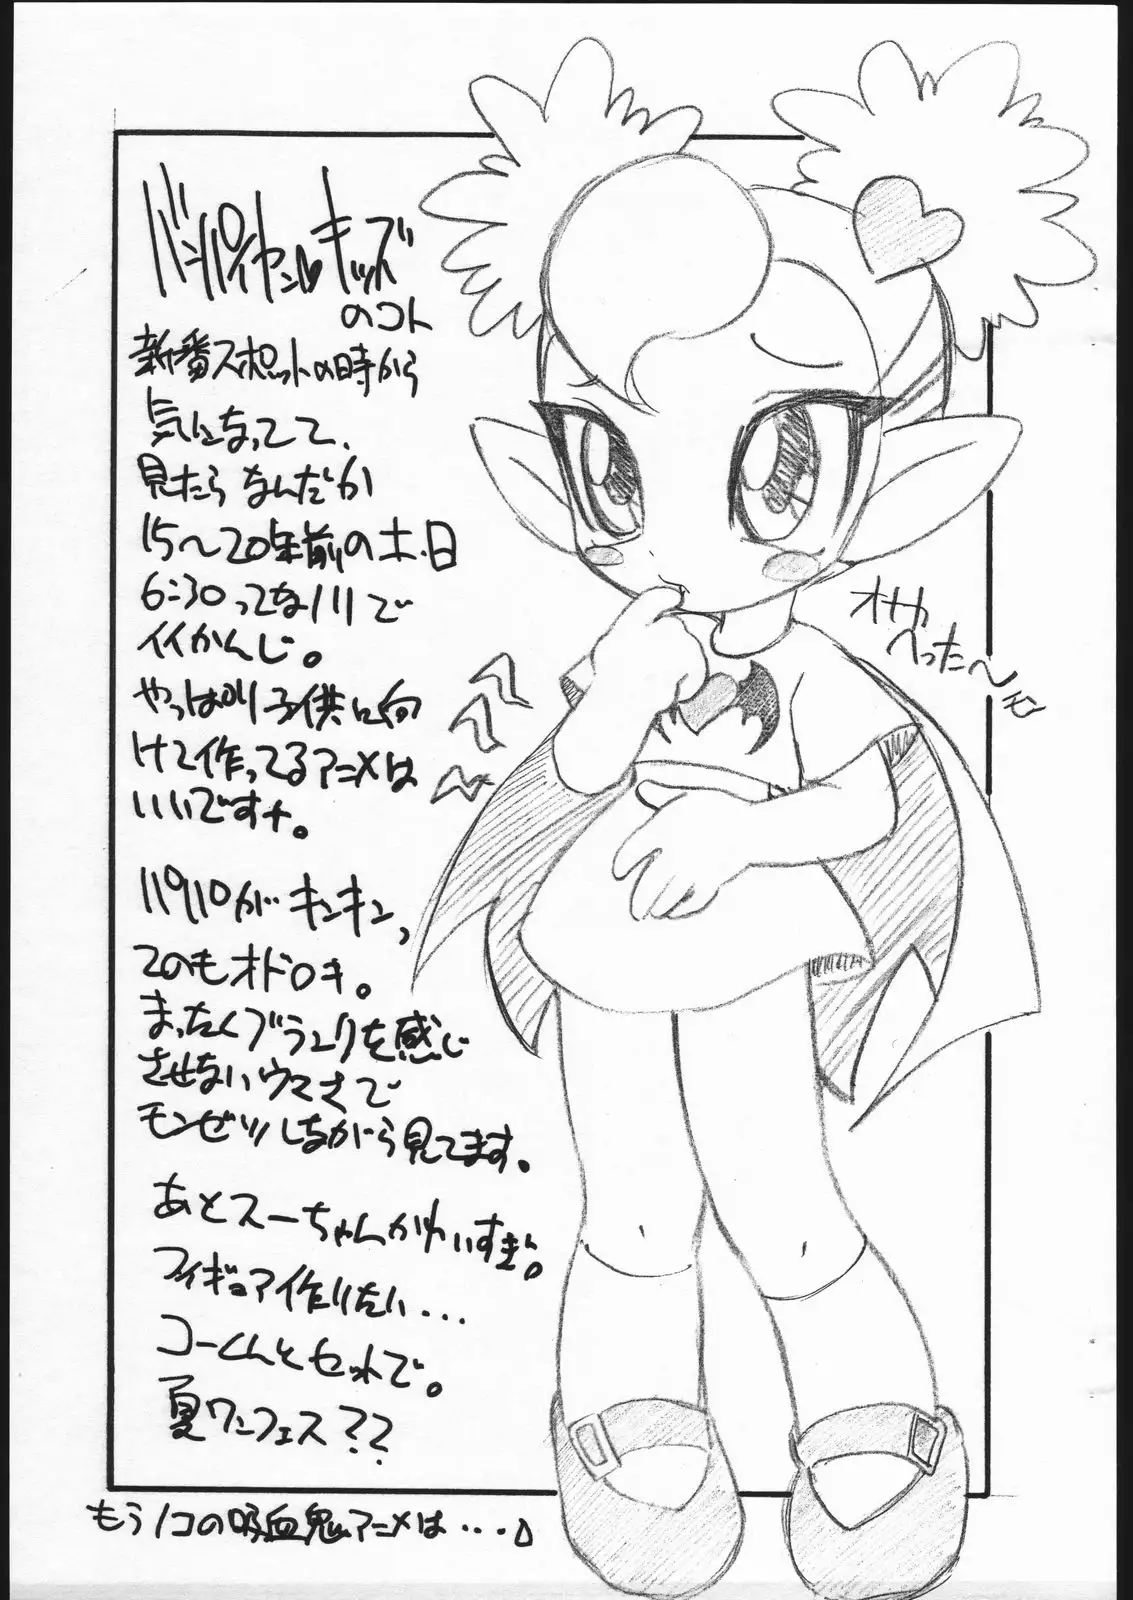 バンパイヤン♥キッズ
のコト
新番スポットの時から
気になってて、
見たらなんだか
15〜20年前の土・日
6:30ってなノリで
イイかんじ。
やっぱり子供に向
けて作ってるアニメは
いいですナ。
ハ9ハ0が キンキン,
てのもオドロキ。
まったくブランクを感じ
させないウマさで
モンゼツしながら見てます。
あとスーちゃんかわいすぎ。
フィギュア作りたい・・・
コーくんとセットで。
夏ワンフェス??
もう1コの吸血鬼アニメは・・・。
オナカ
へった〜